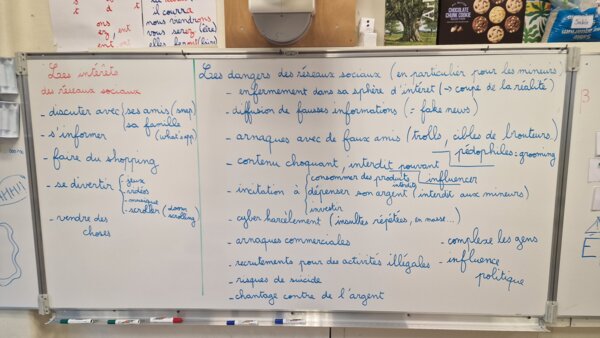 il courra
nous viendrons,
vous serez (être)
elles feront (faire)
ez, ent
CHOCOLATE
CHUNK COOKIE
Les intérêts
des réseaux sociaux
- discuter avec { ses amis (snap)
sa famille
(what's app)
- s'informer
- faire du shopping
- se divertir { - jeux
- vidéos
- musique
- scroller (doom
scrolling)
- vendre des
choses
Les dangers des réseaux sociaux (en particulier pour les mineurs)
- enfermement dans sa sphère d'intérêt (→ coupe de la réalité)
- diffusion de fausses informations (= fake news)
- arnaques avec de faux amis (trolls, cibles de brouteurs)
pédophiles = grooming
- contenu choquant, interdit pouvant
influencer
- incitation à { consommer des produits
interdits
dépenser son argent (interdit aux mineurs)
investir
- cyber harcèlement (insultes répétées, en masse...)
- arnaques commerciales
- recrutements pour des activités illégales
- risques de suicide
- chantage contre de l'argent
- complexe les gens
- influence
politique
3